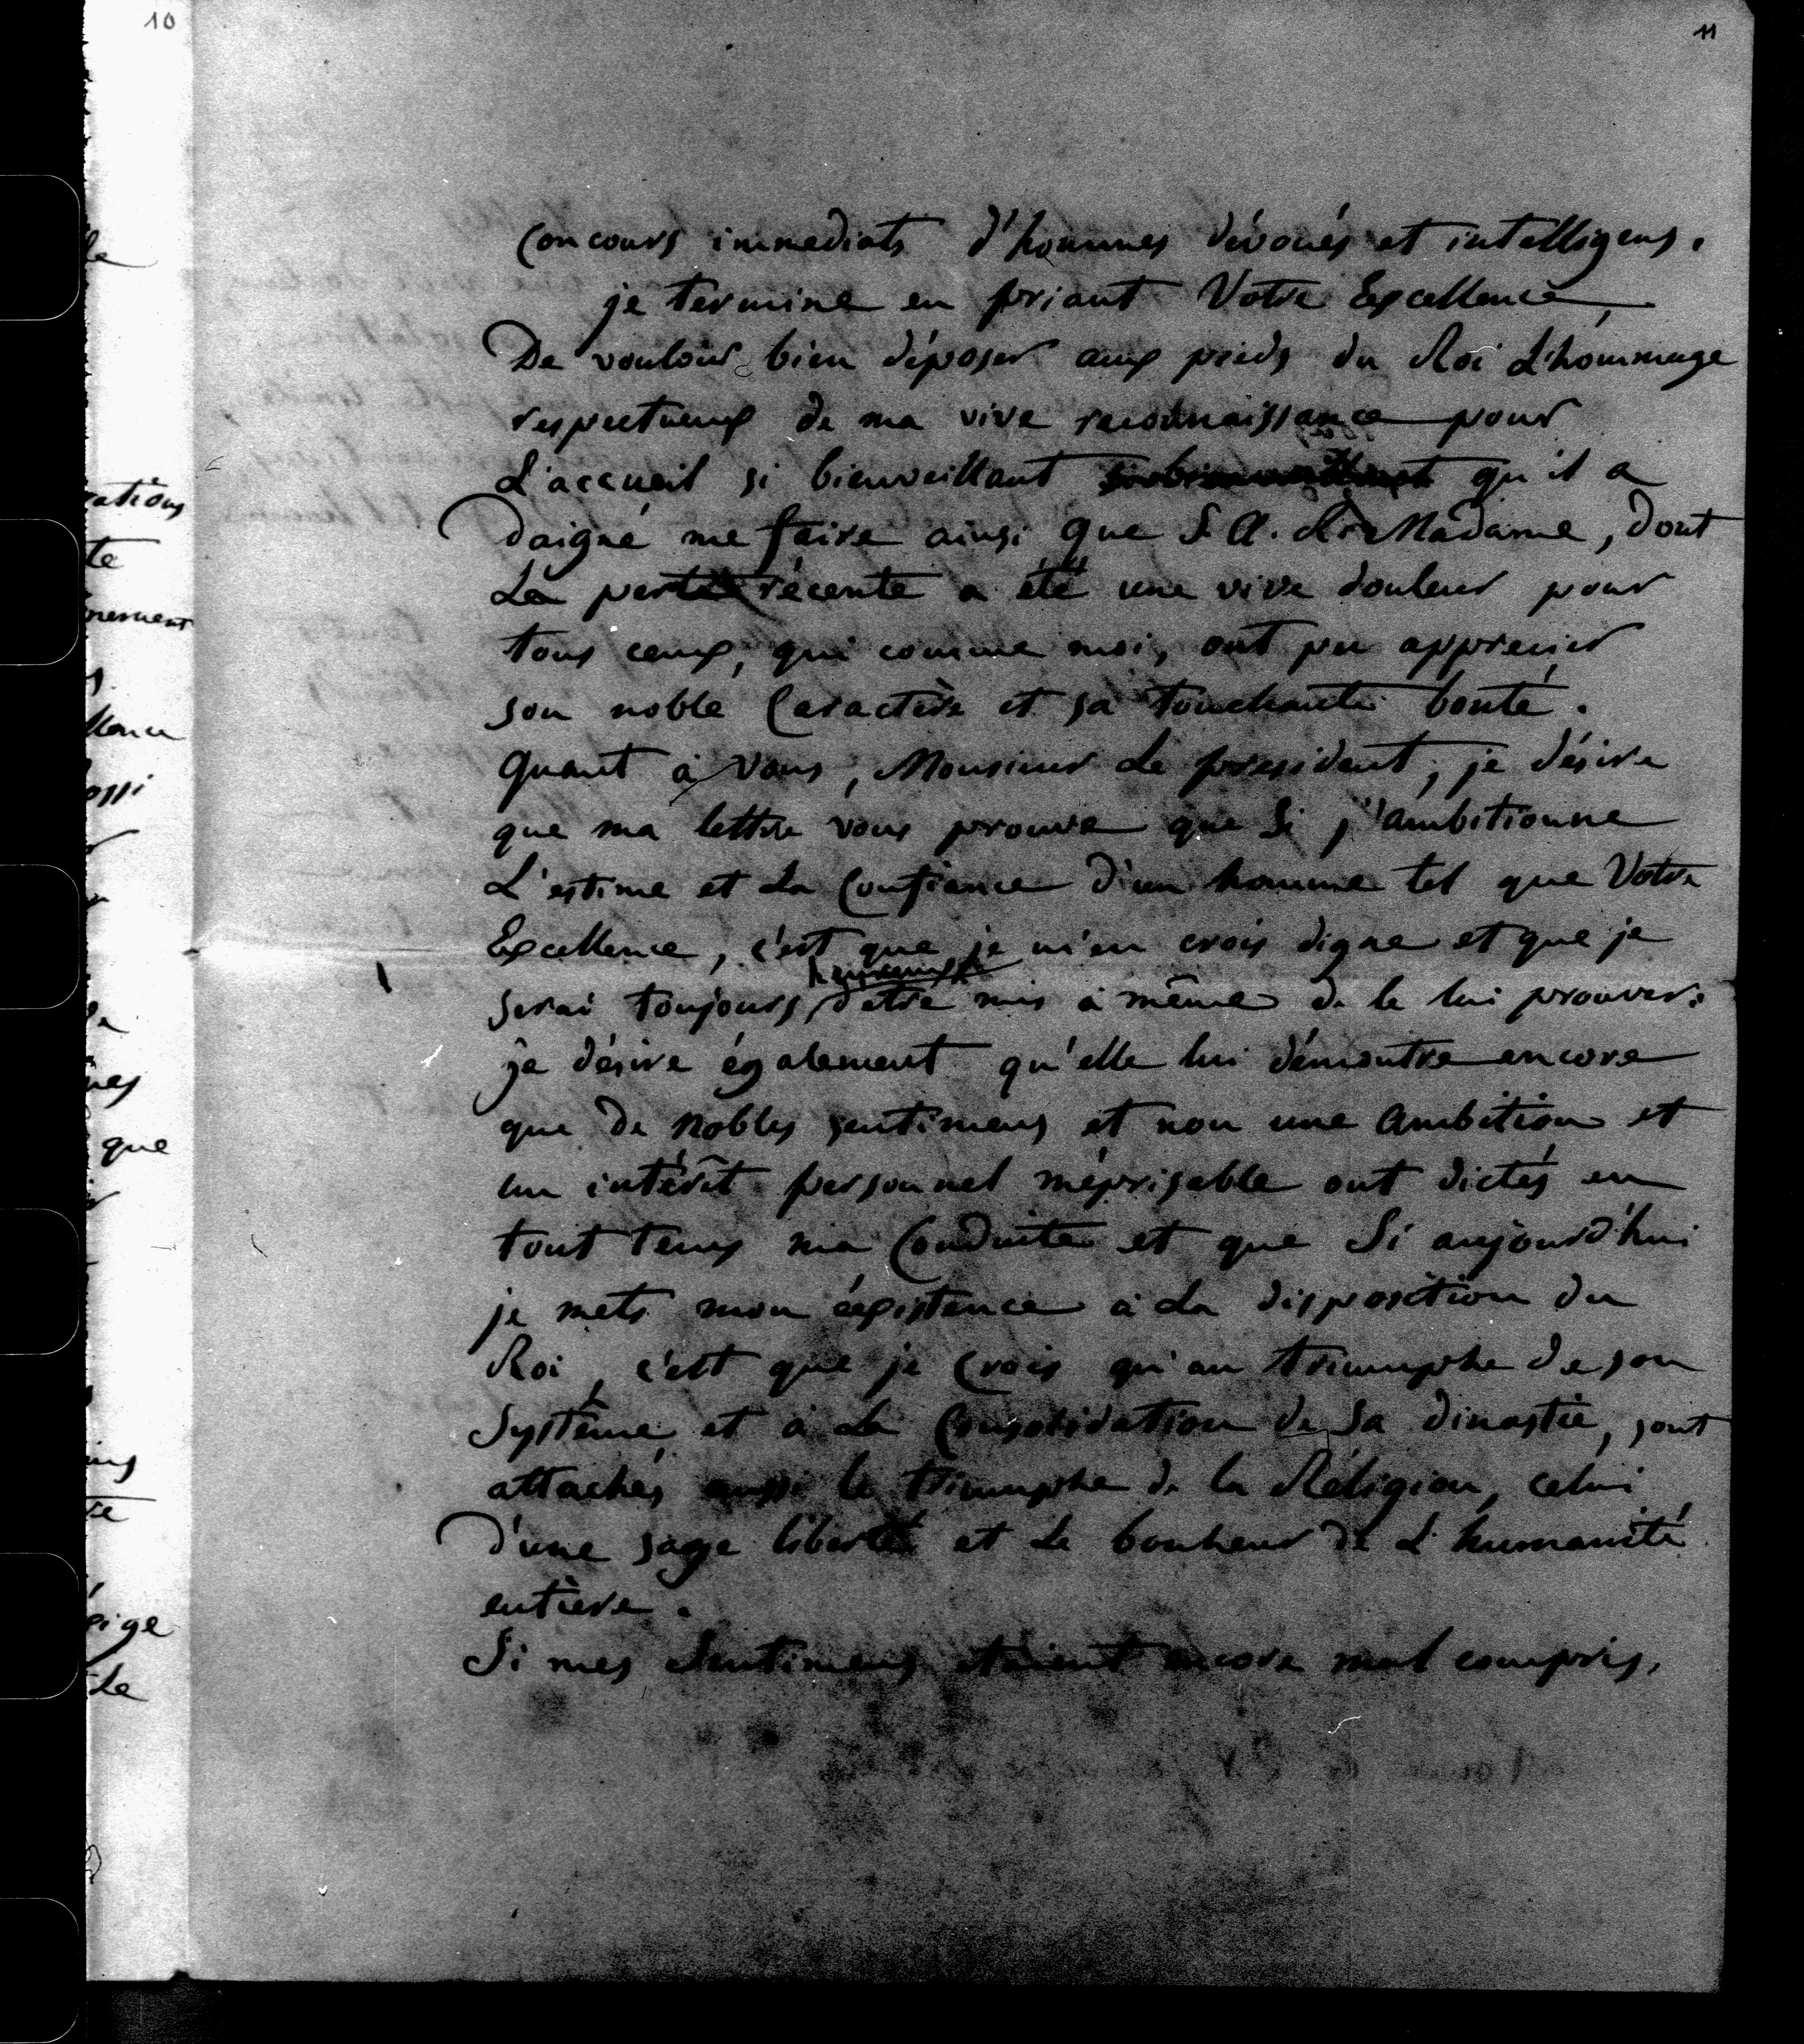 10
11
Concours immediats d'hommes dévoués et intelligens.
je termine en priant Votre Excellence,
De vouloir bien déposer aux pieds du Roi L'hommage
respectueux de ma vive reconnaissance pour
L'accueil si bienveillant si bienveillant qu'il a
Daigné me faire ainsi que S. A. R. Madame, dont
La perte récente a été une vive douleur pour
tous ceux, qui comme moi, ont pu apprecier
son noble Caractère et sa touchante bonté.
Quant à vous, Monsieur Le president, je désire
que ma lettre vous prouve que Si j'ambitionne
L'estime et La Confiance d'un homme tel que Votre
Excellence, c'est que je m'en crois digne et que je
heureux
serai toujours d'etre mis à même de le lui prouver.
je désire également qu'elle lui démontre encore
que de Nobles sentimens et non une Ambition et
un intérêt personnel méprisable ont dictés en
tout tems ma Conduite et que Si aujourd'hui
je mets mon éxistence à La disposition du
Roi, c'est que je Crois qu'au triumphe de son
Système et à La Consolidation de Sa dinastie, sont
attachés aussi le triumphe de la Réligion, celui
D'une sage liberté et Le bonheur de L'humanité
entière.
Si mes Sentimens étaient encore mal compris,
le
rations
te
nement
que
Le